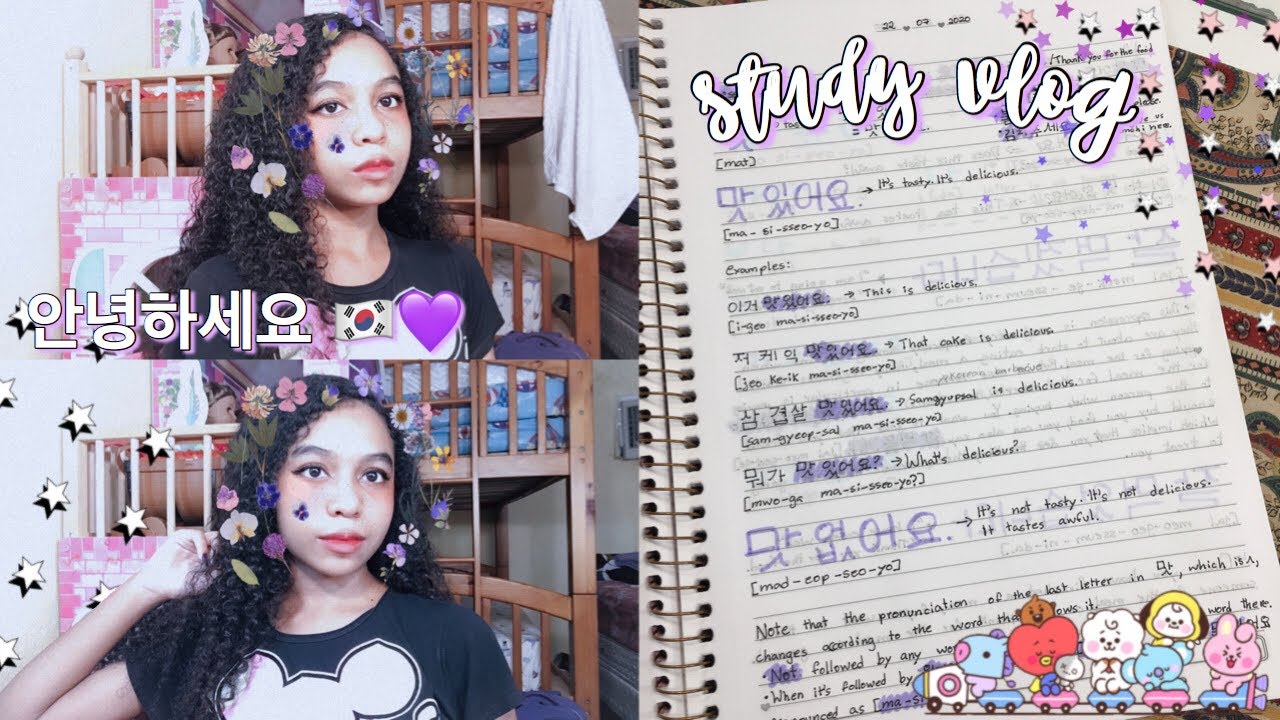 안녕하세요 🇰🇷💜
study vlog
22 07 2020
/Thank you for the food
[mat]
맛있어요. → It's tasty. It's delicious.
[ma-si-sseo-yo]
examples:
이거 맛있어요. → This is delicious.
[i-geo ma-si-sseo-yo]
저 케익 맛있어요. → That cake is delicious.
[jeo ke-ik ma-si-sseo-yo]
Korean barbecue
삼겹살 맛있어요. → Samgyupsal is delicious.
[sam-gyeop-sal ma-si-sseo-yo]
뭐가 맛있어요? → What's delicious?
[mwo-ga ma-si-sseo-yo?]
맛없어요. → It's not tasty. It's not delicious.
It tastes awful.
[mad-eop-seo-yo]
Note that the pronunciation of the last letter in 맛, which is ㅅ,
changes according to the word that follows it. word there.
• Not followed by any
• When it's followed by
[ma-si